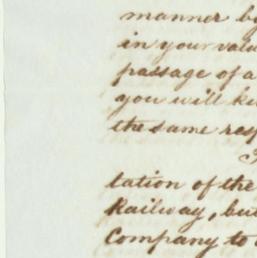 manner by
in your valu
passage of a
you will k
the same resp
tation of the
Railway, but
Company to